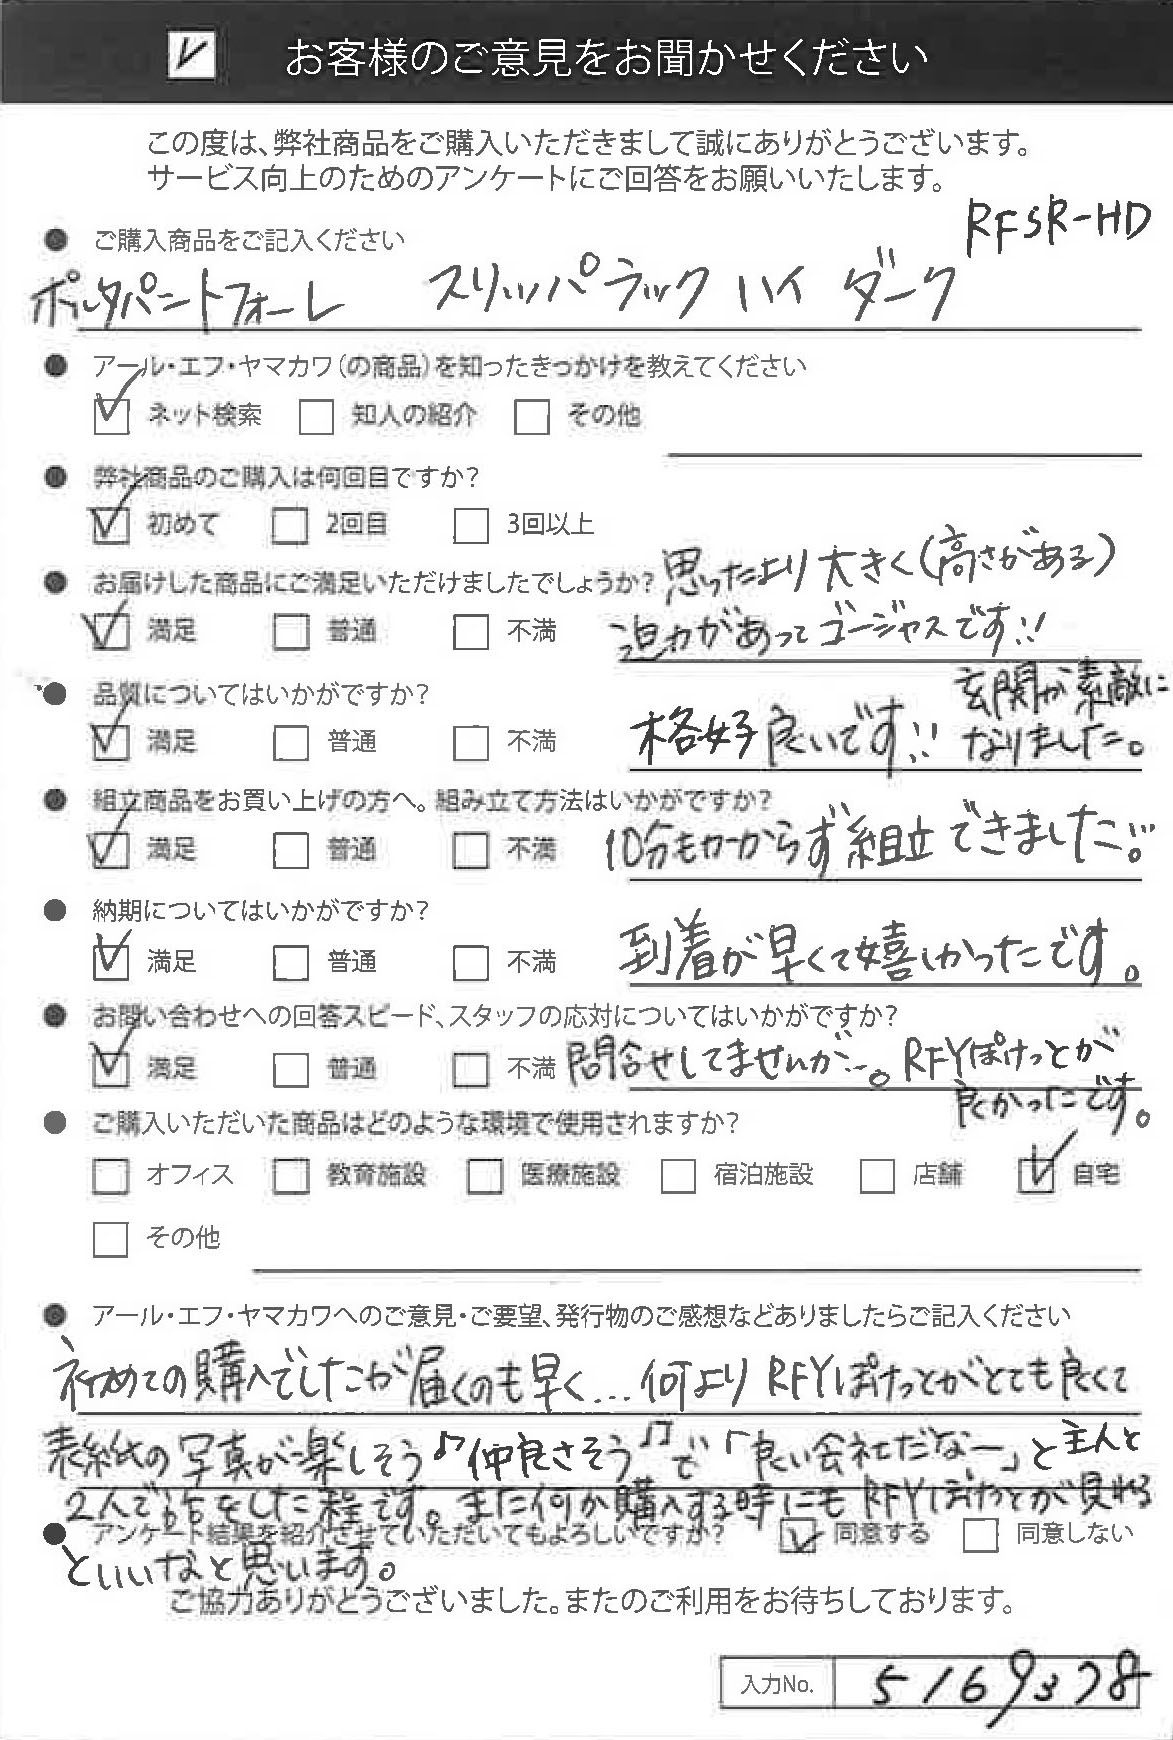 お客様のご意見をお聞かせください
この度は、弊社商品をご購入いただきまして誠にありがとうございます。
サービス向上のためのアンケートにご回答をお願いいたします。
RFSR-HD
● ご購入商品をご記入ください
ポルタパントフォーレ スリッパラック ハイ ダーク
● アール・エフ・ヤマカワ(の商品)を知ったきっかけを教えてください
ネット検索 知人の紹介 その他
● 弊社商品のご購入は何回目ですか?
初めて 2回目 3回以上
● お届けした商品にご満足いただけましたでしょうか? 思ったより大きく(高さがある)
満足 普通 不満 迫力があってゴージャスです!!
● 品質についてはいかがですか? 玄関が素敵に
満足 普通 不満 格好良いです!! なりました。
● 組立商品をお買い上げの方へ。組み立て方法はいかがですか?
満足 普通 不満 10分もかからず組立できました!!
● 納期についてはいかがですか?
満足 普通 不満 到着が早くて嬉しかったです。
● お問い合わせへの回答スピード、スタッフの応対についてはいかがですか?
満足 普通 不満 問合せしてませんが…。RFYぽけっとが
良かったです。
● ご購入いただいた商品はどのような環境で使用されますか?
オフィス 教育施設 医療施設 宿泊施設 店舗 自宅
その他
● アール・エフ・ヤマカワへのご意見・ご要望、発行物のご感想などありましたらご記入ください
初めての購入でしたが届くのも早く...何よりRFYぽけっとがとても良くて
表紙の写真が楽しそう♪仲良さそう♫で「良い会社だなー」と主人と
2人で話をした程です。また何か購入する時にもRFYぽけっとが見れる
● アンケート結果を紹介させていただいてもよろしいですか? 同意する 同意しない
といいなと思います。
ご協力ありがとうございました。またのご利用をお待ちしております。
入力No. 5169378